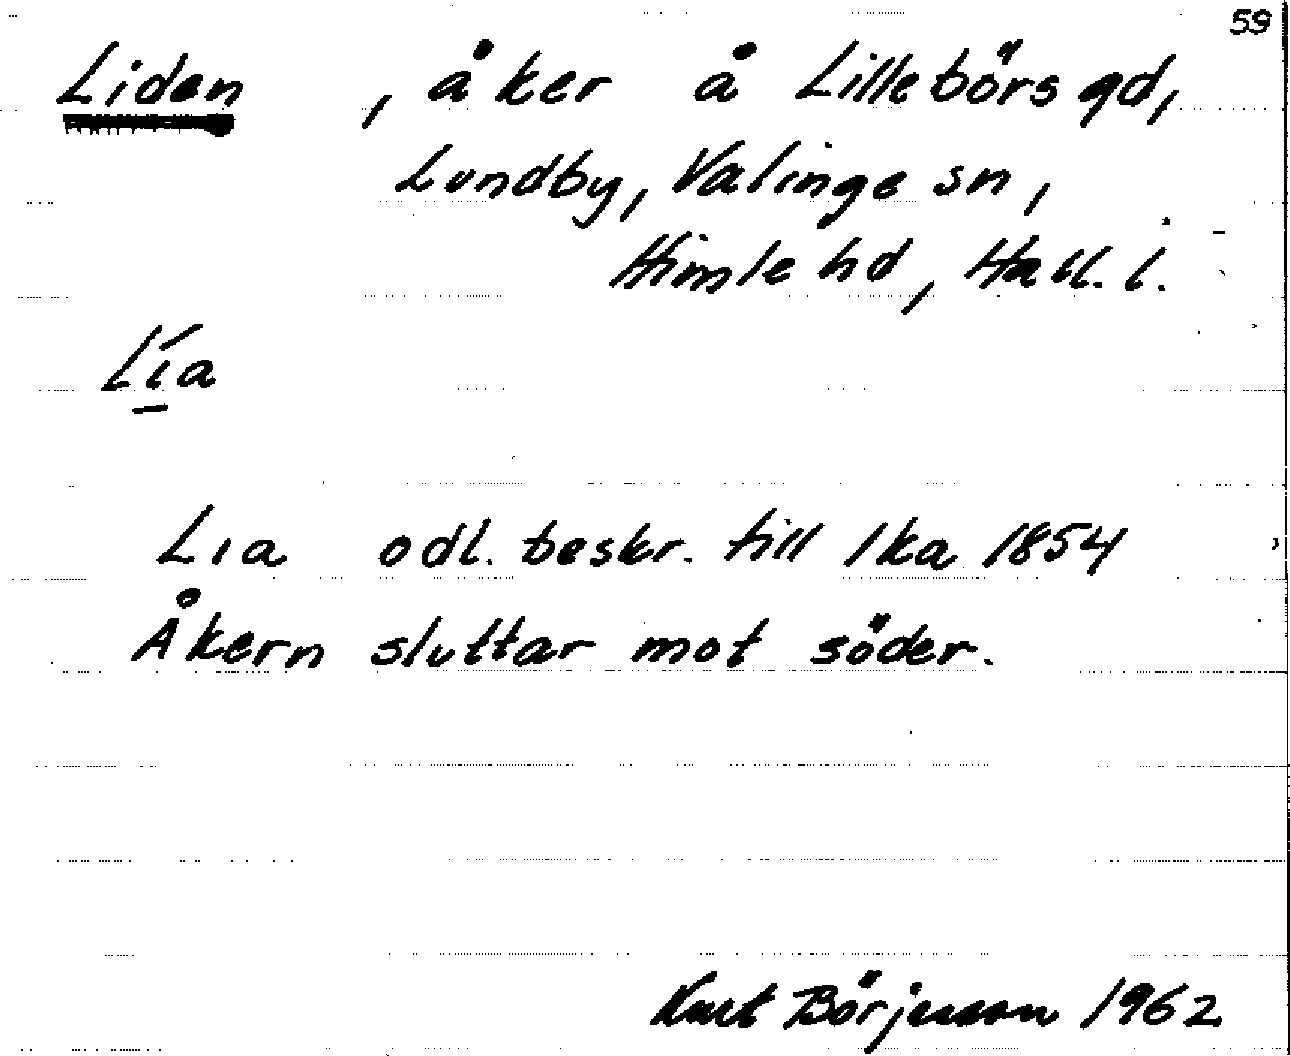 59
Liden , åker å Lillebörs gd,
Lundby, Valinge sn,
Himle hd, Hall. l.
Lía
Lia odl. beskr. till lka 1854
Åkern sluttar mot söder.
Knut Börjesson 1962